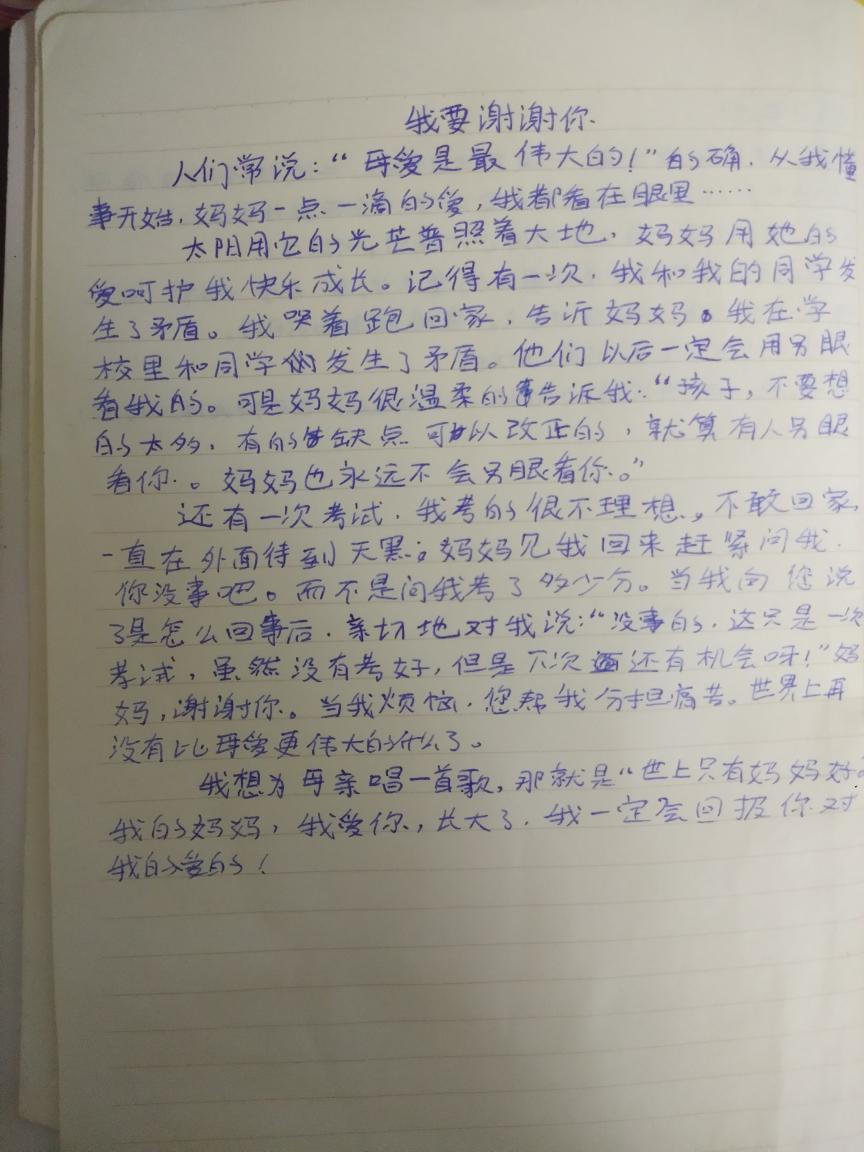 我要谢谢你.
人们常说：“母爱是最伟大的！”的确．从我懂
事开始，妈妈一点一滴的爱，我都看在眼里……
太阳用它的光芒普照着大地．妈妈用她的
爱呵护我快乐成长。记得有一次．我和我的同学发
生了矛盾。我哭着跑回家．告诉妈妈。我在学
校里和同学们发生了矛盾。他们以后一定会用另眼
看我的。可是妈妈很温柔的告诉我：“孩子，不要想
的太多．有的缺点可以改正的，就算有人另眼
看你．。妈妈也永远不会另眼看你．。”
还有一次考试．我考的很不理想．，不敢回家，
一直在外面待到天黑；妈妈见我回来赶紧问我．
你没事吧。而不是问我考了多少分。当我向您说
了是怎么回事后．亲切地对我说：“没事的，这只是一次
考试，虽然没有考好，但是下次还有机会呀！”妈
妈，谢谢你。当我烦恼．您帮我分担痛苦。世界上再
没有比母爱更伟大的什么了。
我想为母亲唱一首歌，那就是“世上只有妈妈好”
我的妈妈，我爱你，长大了．我一定会回报你对
我的爱的！